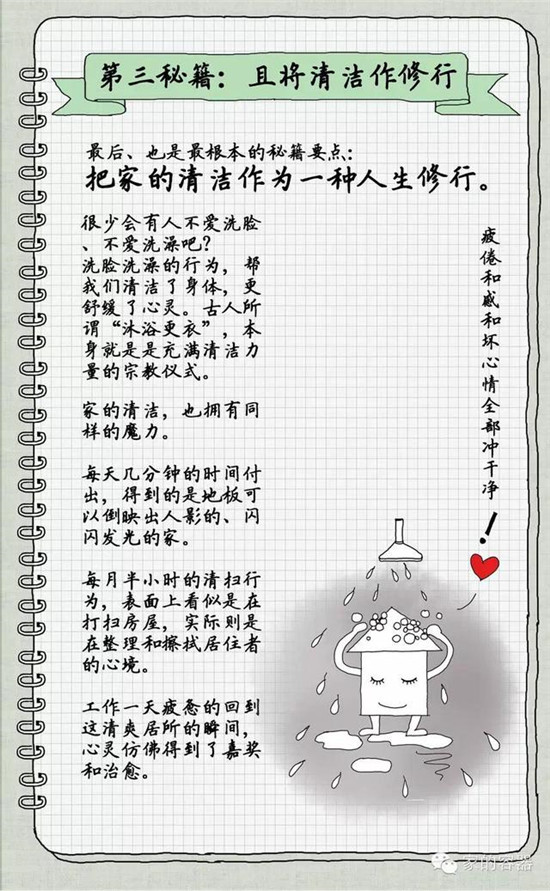 第三秘籍：且将清洁作修行
最后、也是最根本的秘籍要点：
把家的清洁作为一种人生修行。
很少会有人不爱洗脸
、不爱洗澡吧？
洗脸洗澡的行为，帮
我们清洁了身体，更
舒缓了心灵。古人所
谓“沐浴更衣”，本
身就是是充满清洁力
量的宗教仪式。
家的清洁，也拥有同
样的魔力。
每天几分钟的时间付
出，得到的是地板可
以倒映出人影的、闪
闪发光的家。
每月半小时的清扫行
为，表面上看似是在
打扫房屋，实际则是
在整理和擦拭居住者
的心境。
工作一天疲惫的回到
这清爽居所的瞬间，
心灵仿佛得到了嘉奖
和治愈。
疲倦和感和坏心情全部冲干净！
家的容器